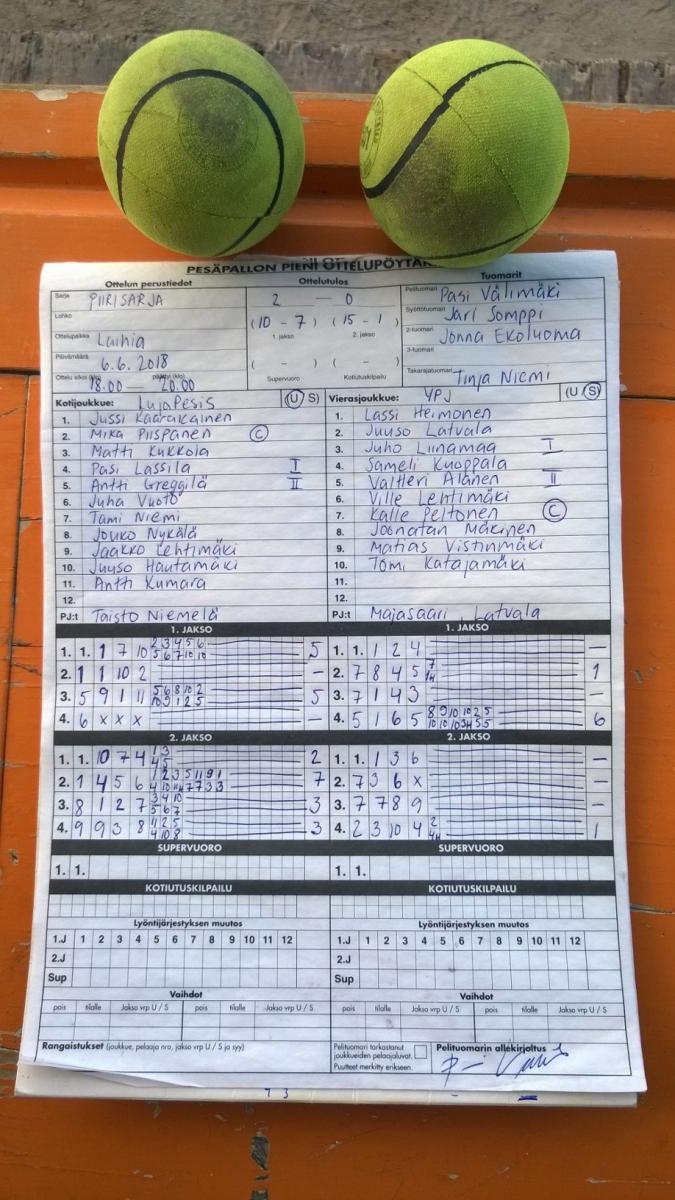 PESÄPALLON PIENI OTTELUPÖYTÄK
Ottelun perustiedot
Sarja PIIRISARJA
Lohko
Ottelupaikka Laihia
Päivämäärä 6.6.2018
18.00 — 20.00
Ottelutulos
2 — 0
(10 - 7) (15 - 1)
1. jakso 2. jakso
( - ) ( - )
Supervuoro Kotiutuskilpailu
Tuomarit
Pelituomari Pasi Välimäki
Syöttötuomari Jari Somppi
2-tuomari Jonna Ekoluoma
3-tuomari
Takarajatuomari Tinja Niemi
Kotijoukkue: LujaPesis (U S)
1. Jussi Kaarakainen
2. Mika Piispanen C
3. Matti Kukkola
4. Pasi Lassila I
5. Antti Greggilä II
6. Juha Vuoto
7. Tami Niemi
8. Jouko Nykälä
9. Jaakko Lehtimäki
10. Juuso Hautamäki
11. Antti Kumara
12.
PJ:t Taisto Niemelä
Vierasjoukkue: YPJ (U S)
1. Lassi Heimonen
2. Juuso Latvala
3. Juho Liinamaa I
4. Sameli Kuoppala
5. Valtteri Alanen II
6. Ville Lehtimäki
7. Kalle Peltonen C
8. Joonatan Mäkinen
9. Matias Vistinmäki
10. Tomi Katajamäki
11.
12.
PJ:t Majasaari Latvala
1. JAKSO
1. 1. 1 7 10 2 3 4 5 6 5
5 6 7 10 10
2. 1 1 10 2 -
3. 5 9 1 11 5 6 8 10 2 5
10 9 1 2 5
4. 6 x x x -
1. JAKSO
1. 1. 1 2 4 -
2. 7 8 4 5 1
3. 7 1 4 3 -
4. 5 1 6 5 8 9 10 10 2 5 6
2. JAKSO
1. 1. 10 7 4 1 3 2
4 5
2. 1 4 5 6 1 2 3 5 11 9 1 7
3. 8 1 2 7 3 4 10 3
5 6 7
4. 9 9 3 8 1 2 5 3
4 10 8
2. JAKSO
1. 1. 1 3 6 -
2. 7 3 6 x -
3. 7 7 8 9 -
4. 2 3 10 4 2 1
SUPERVUORO
1. 1.
SUPERVUORO
1. 1.
KOTIUTUSKILPAILU
KOTIUTUSKILPAILU
Lyöntijärjestyksen muutos
1.J 1 2 3 4 5 6 7 8 9 10 11 12
2.J
Sup
Lyöntijärjestyksen muutos
1.J 1 2 3 4 5 6 7 8 9 10 11 12
2.J
Sup
Vaihdot
pois tilalle Jakso vrp U / S pois tilalle Jakso vrp U / S
Vaihdot
pois tilalle Jakso vrp U / S pois tilalle Jakso vrp U / S
Rangaistukset (joukkue, pelaaja nro, jakso vrp U / S ja syy)
Pelituomari tarkastanut
joukkueiden pelaajaluvat.
Puutteet merkitty erikseen.
Pelituomarin allekirjoitus